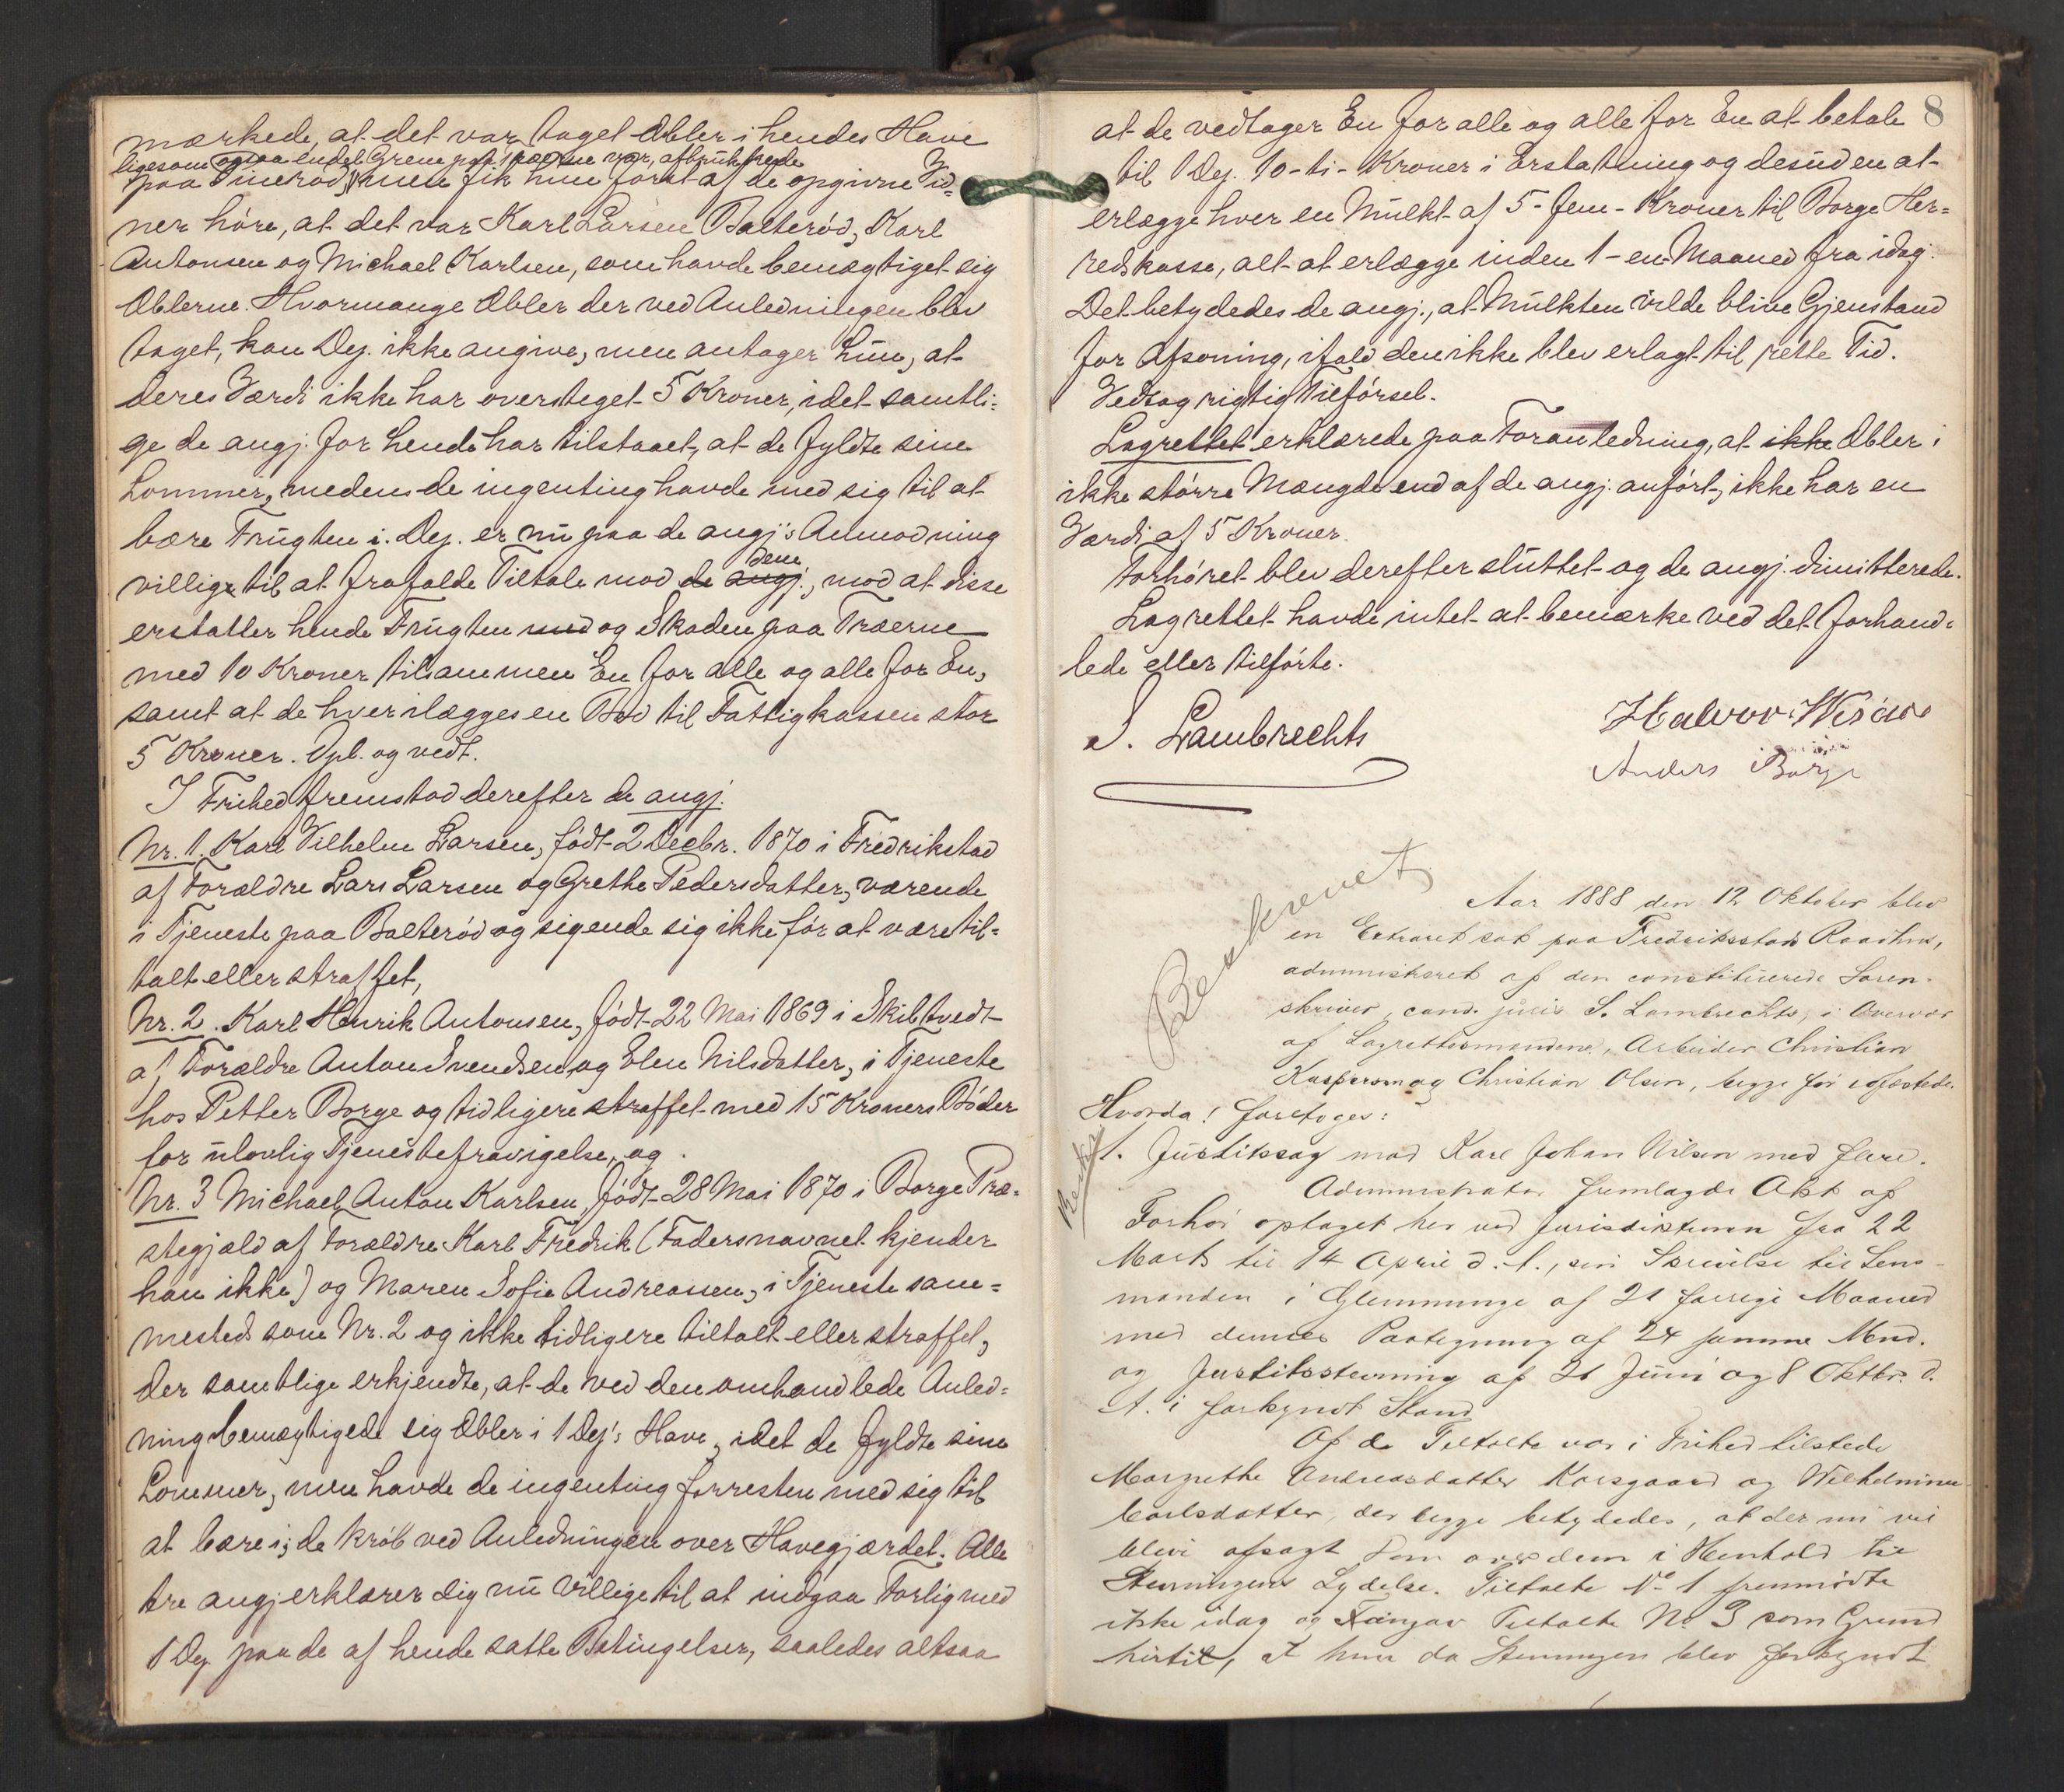 mærkede, at det var taget Æbler i hendes Have
ligesom ogsaa endel Grene paa Træerne var afbrukkede
paa Tinerød, men fik hun først af de opgivne Vid-
ner høre, at det var Karl Larsen Balterød, Karl
Antonsen og Michael Karlsen, som havde bemægtiget sig
Æblerne. Hvormange Æbler der ved Anledningen blev
taget, kan Dep. ikke angive, men antager hun, at
deres Værdi ikke har oversteget 5 Kroner, idet samtli-
ge de angj. for hende har tilstaaet, at de fyldte sine
Lommer, medens de ingenting havde med sig til at
bære Frugten i. Dep. er nu paa de angj's Anmodning
villig til at frafalde Tiltale mod de angj. dem, mod at disse
erstatter hende Frugten med og Skaden paa Træerne
med 10 Kroner tilsammen En for alle og alle for En,
samt at de hver ilægges en Bod til Fattigkassen stor
5 Kroner. Opl. og vedt.
I Frihed fremstod derefter de angj.
Nr. 1. Karl Vilhelm Larsen, født 2 Decbr. 1870 i Fredrikstad
af Forældre Lars Larsen og Grethe Pedersdatter, værende
i Tjeneste paa Balterød og sigende sig ikke før at være til-
talt eller straffet,
Nr. 2. Karl Henrik Antonsen, født 22 Mai 1869 i Skibtvedt
af Forældre Anton Svendsen og Elen Nilsdatter, i Tjeneste
hos Petter Borge og tidligere straffet med 15 Kroners Bøder
for ulovlig Tjenestefravigelse, og
Nr. 3 Michael Anton Karlsen, født 28 Mai 1870 i Borge Præ-
stegjæld af Forældre Karl Fredrik (Fadersnavnet kjender
han ikke) og Maren Sofie Andreassen, i Tjeneste sam-
mested som Nr. 2 og ikke tidligere tiltalt eller straffet,
der samtlige erkjendte, at de ved den omhandlede Anled-
ning bemægtigede sig Æbler i 1 Dep's Have, idet de fyldte sine
Lommer, men havde de ingenting forresten med sig til
at bære i; de krøb ved Anledningen over Havegjærdet. Alle
tre angj. erklærer sig nu villige til at indgaa Forlig med
1 Dep. paa de af hende satte Betingelser, saaledes altsaa
8
at de vedtager En for alle og alle for En at betale
til 1 Dep. 10 - ti - Kroner i Erstatning og desuden at
erlægge hver en Mulkt af 5 - fem - Kroner til Borge Her-
redskasse, alt at erlægge inden 1 - en Maaned fra idag.
Det betydedes de angj., at Mulkten vilde blive Gjenstand
for Afsoning, ifald den ikke blev erlagt til rette Tid.
Vedtog rigtig Tilførsel.
Lagrettet erklærede paa Foranledning, at ikke Æbler i
ikke større Mængde end af de angj. anført, ikke har en
Værdi af 5 Kroner.
Forhøret blev derefter sluttet og de angj. dimitterede.
Lagrettet havde intet at bemærke ved det forhand-
lede eller tilførte.
S. Lambrechts
Halvor
Anders Borge
Beskrevet
Aar 1888 den 12 Oktober blev
en Extraret sat paa Fredriksstad Raadhus,
administreret af den constituerede Soren-
skriver, cand. juris S. Lambrechts, i Overvær
af Lagrettesmændene, Arbeider Christian
Kaspersen og Christian Olsen, begge før edfæstede.
Hvorda! foretoges:
1. Justitssag mod Karl Johan Nilsen med flere.
Administrator fremlagde Akt af
Forhør optaget her ved Jurisdiktionen fra 22
Marts til 14 April d. A., sin Skrivelse til Lens-
manden i Glemminge af 21 forrige Maaned
med dennes Paategning af 24 samme Mnd.
og Justitsstevning af 21 Juni og 8 Oktbr. d.
A. i forkyndt Stand
Af de Tiltalte var i Frihed tilstede
Margrethe Andreasdatter Korsgaard og Wilhelmine
Carlsdatter, der begge betydedes, at der nu vil
blive afsagt Dom over dem i Henhold til
Stevningens Lydelse. Tiltalte No 1 fremmødte
ikke idag og angav Tiltalte No. 3 som Grund
hertil, at hun da Stevningen blev forkyndt